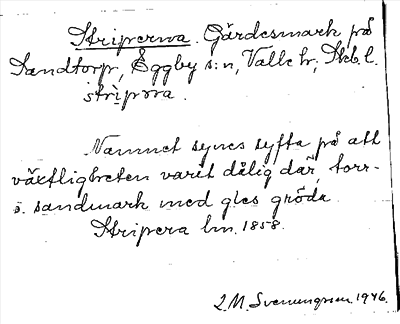 Striperna. Gärdesmark på
Sandtorp, Eggby s:n, Valle hr, Skb. l.
strìpơra.
Namnet synes syfta på att
växtligheten varit dålig där, torr-
o. sandmark med gles gröda.
Stripera lm. 1858.
L.M. Svenungsson 1946.